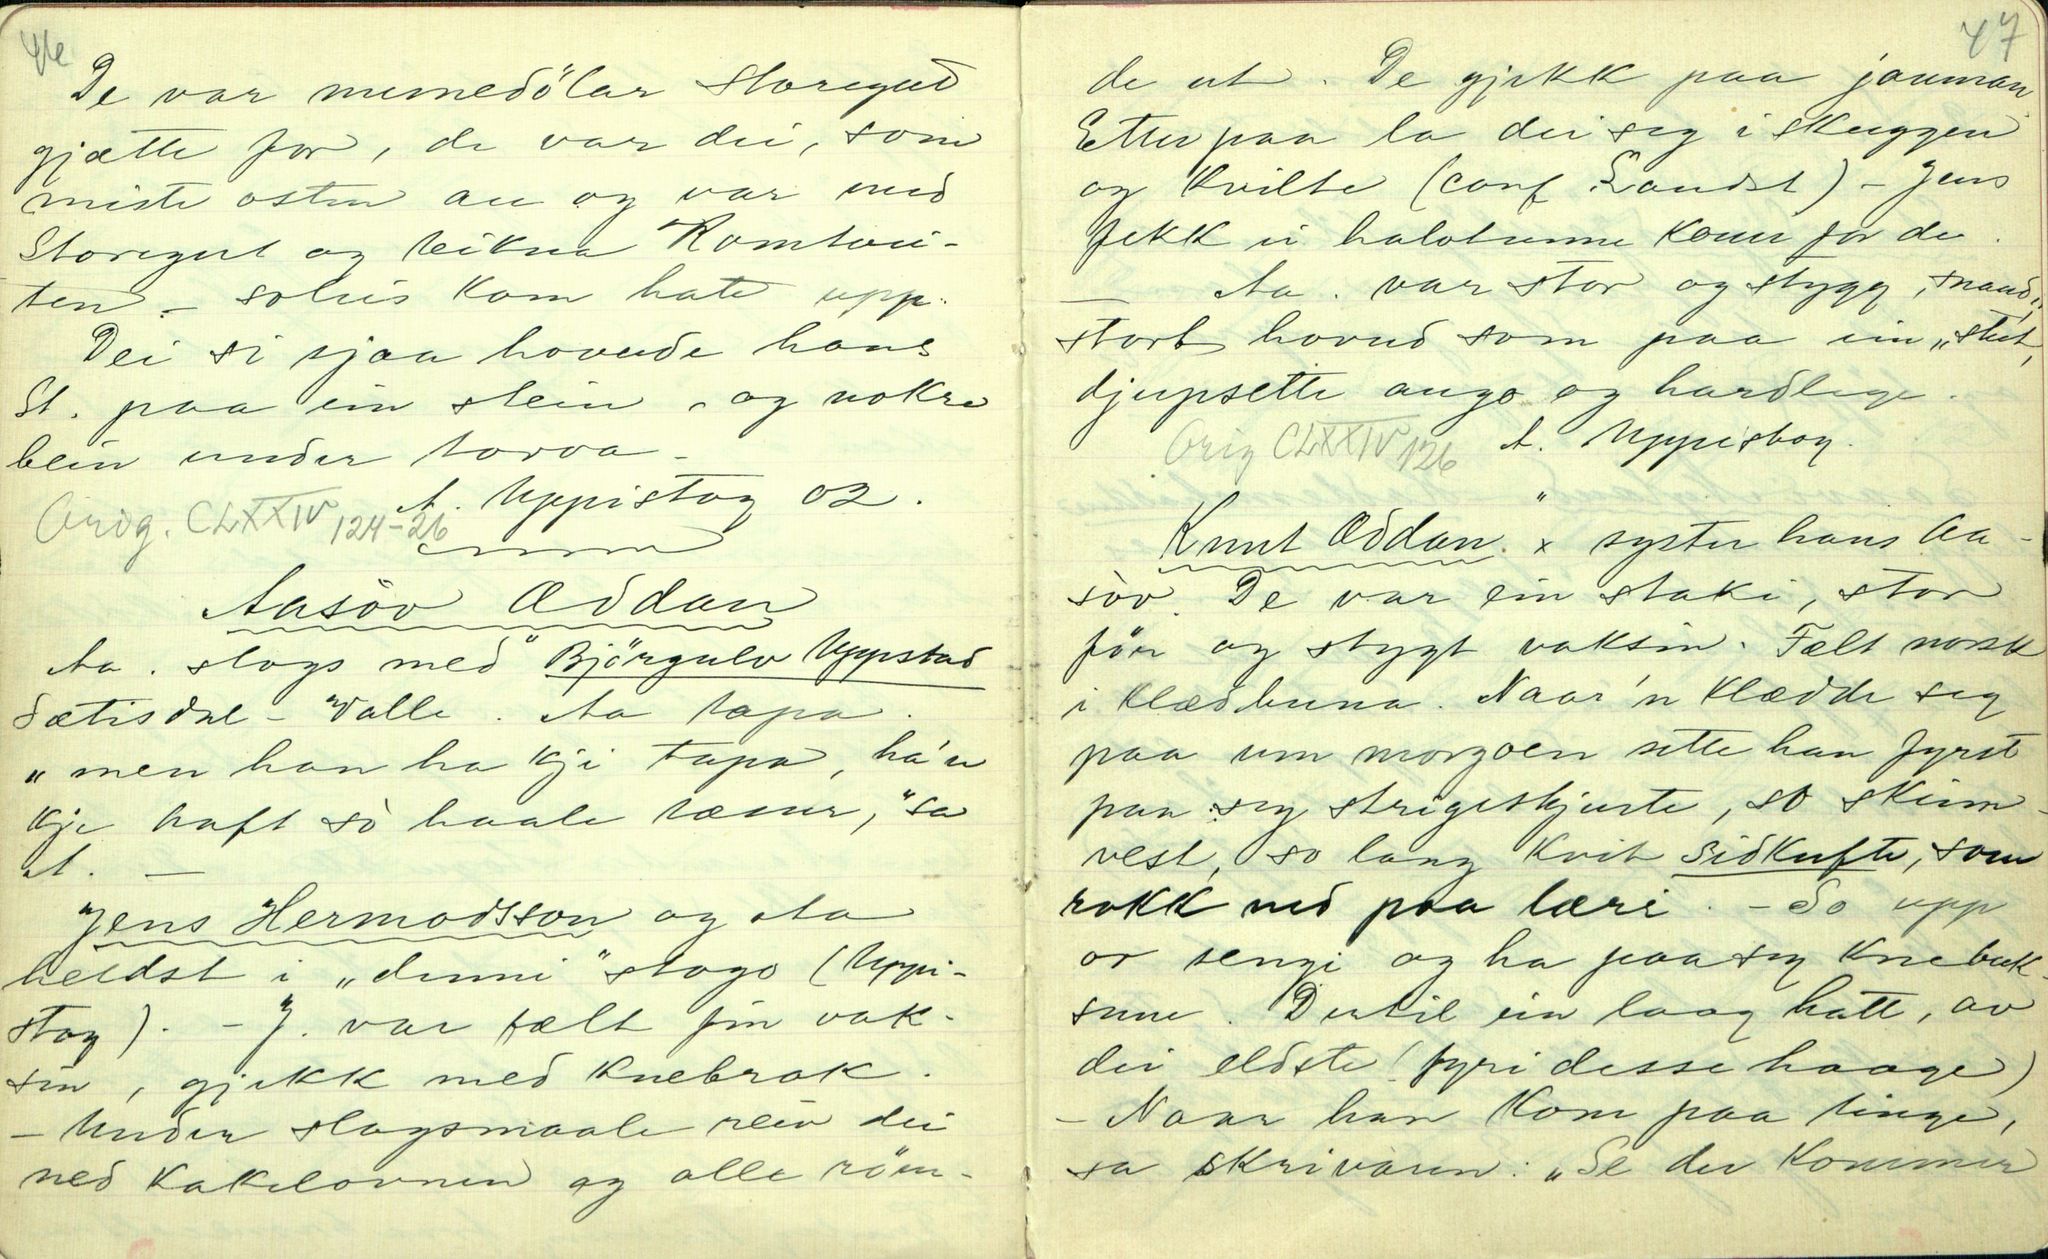 46
De var mumedölar Storegut
gjætte for, de var dei, som
miste osten au og var med
Storegut og leikua Romtvei-
ten – soleis kom hate upp.
Dei si sjaa hovude hans
St. paa ein stein og nokre
bein under torva –
A. Uppistog 02.
Orig. CLXXIV 124-26
Aasöv Æddan
Aa. slogs med Björgulv Uppstad
Sætisdal – Valle. Aa tapa.
„men han ha kji tapa, ha'n
kje haft sò haale tæner," sa
A. —
Jens Hermodsson og Aa
heldst i „dimi" stogo (Uppi-
stog). – J. var fælt fin vak-
sin, gjekk med knebrok.
– Under slagsmaale reiv dei
ned kakelovnen og alle röu-
47
de ut. De gjekk paa jauman
Etter paa la dei seg i skuggen
og kvilte (conf Landst) – Jens
fekk ei halvtunne konn for de.
— Aa. var stor og stygg,
stort hovud som paa ein „stut,
djupsette augo og hardlege.
A. Uppistog.
Orig CLXXIV 126
Knut Æddan. x syster hans Aa-
söv. De var ein staki, stor
för og stygt vaksin. Fælt norsk
i klædbuna. Naar 'n klædde seg
paa um morgoen sette han fyrst
paa seg strigeskjurte, so skinn-
vest, so lang kvit sidkufte, som
rokk ned paa læri. – So upp
or sengi og ha paa seg knebuk-
sune. Dertil ein laag hatt, av
dei eldste (fyri desse haage)
– Naar han kom paa tinge,
sa skrivaren: „Se der kommer